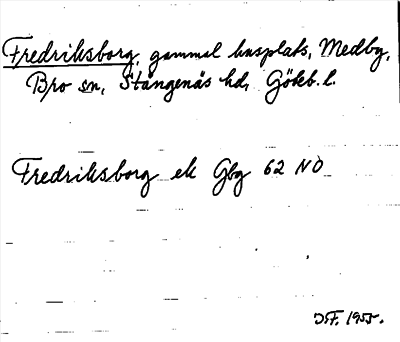 Fredriksborg, gammal husplats, Medby,
Bro sn, Stångenäs hd, Göteb. l.
Fredriksborg ek Gbg 62 NO
J.F. 1955.